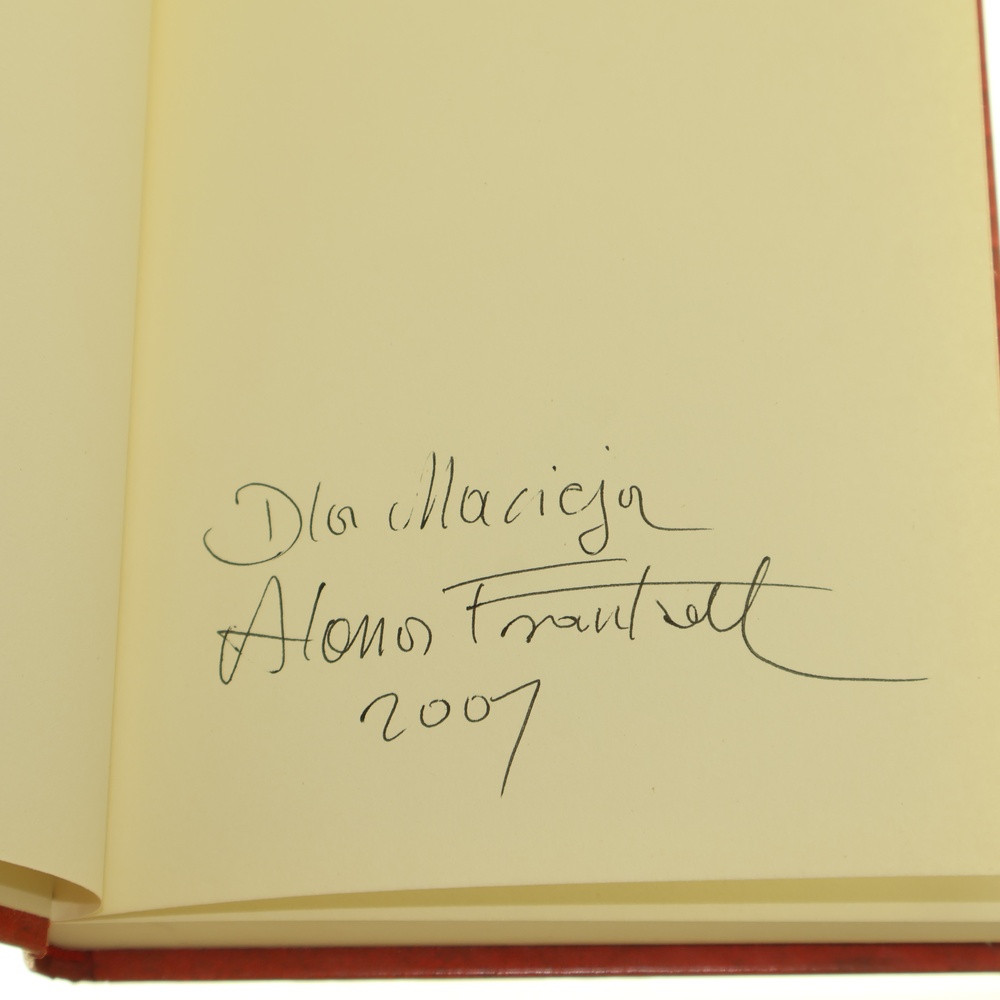 Dla Macieja
Alona Frankel
2007